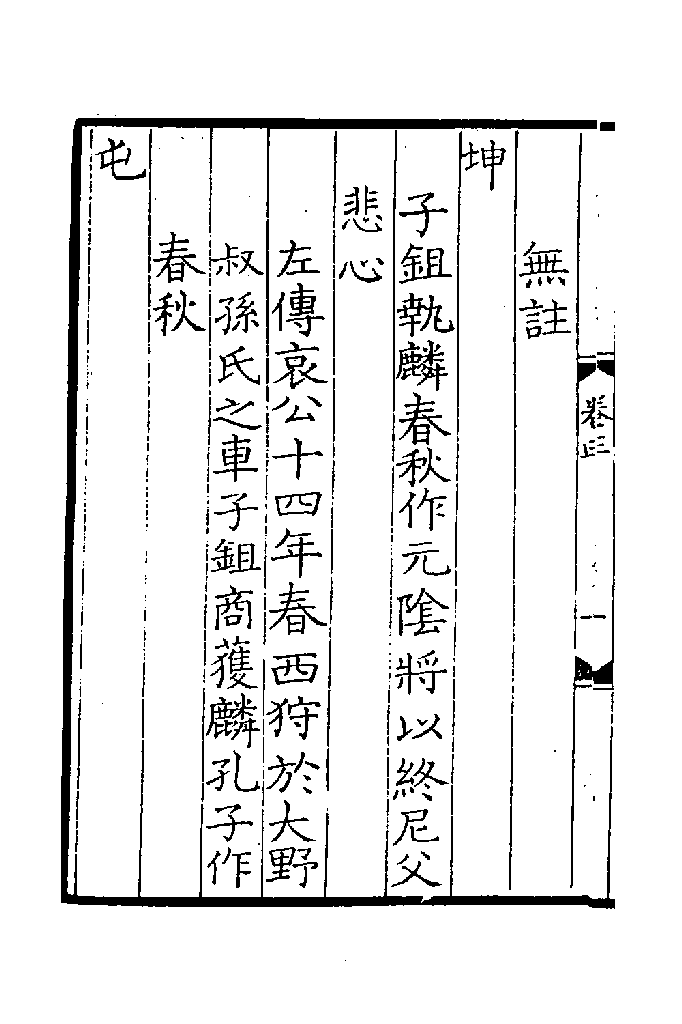 卷三
一
無註
坤
子鉏執麟春秋作元陰將以終尼父
悲心
左傳哀公十四年春西狩於大野
叔孫氏之車子鉏商獲麟孔子作
春秋
屯